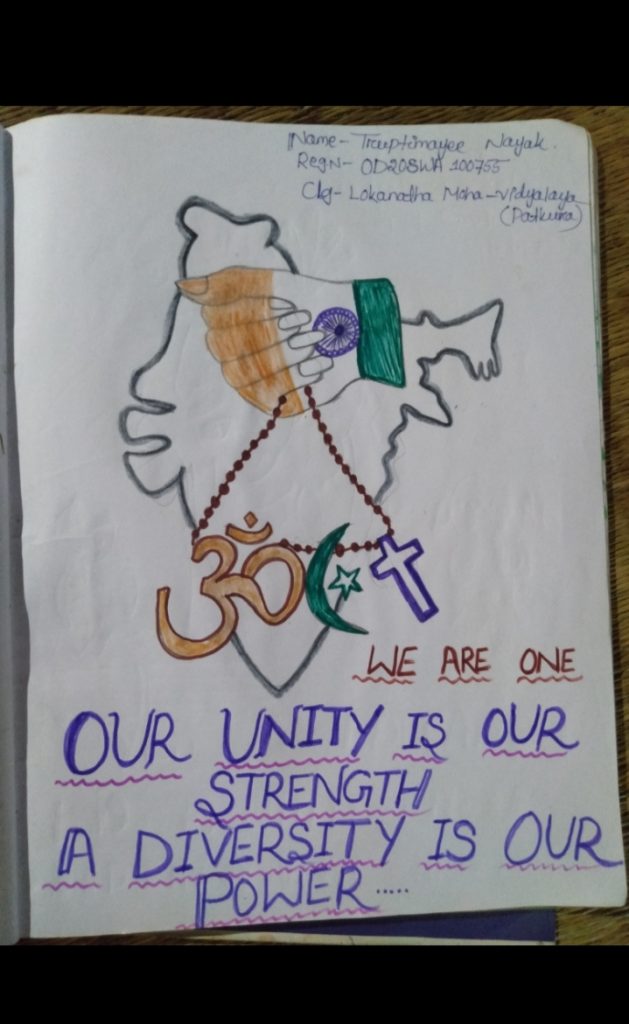 Name- Truptimayee Nayak.
RegN- OD20SWA 100755
Clg- Lokanatha Maha-vidyalaya
(Patkura)
ॐ
WE ARE ONE
OUR UNITY IS OUR
STRENGTH
A DIVERSITY IS OUR
POWER.....